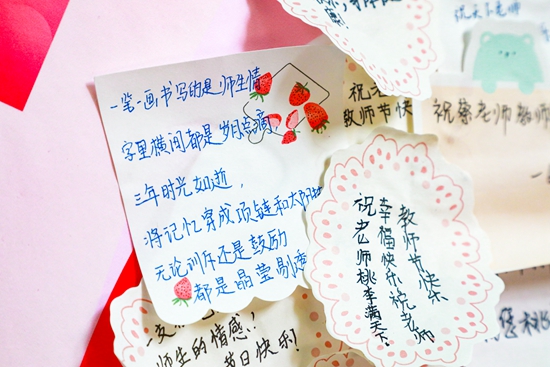 一笔一画书写的是师生情
字里横间都是岁月点滴
三年时光如逝,
将记忆穿成项链和太阳
无论训斥还是鼓励
都是晶莹剔透
祝老
教师节快
祝蔡老师教师
教师节快乐
幸福快乐祝老师
祝老师桃李满天下!
师生的情感!!
节日快乐!